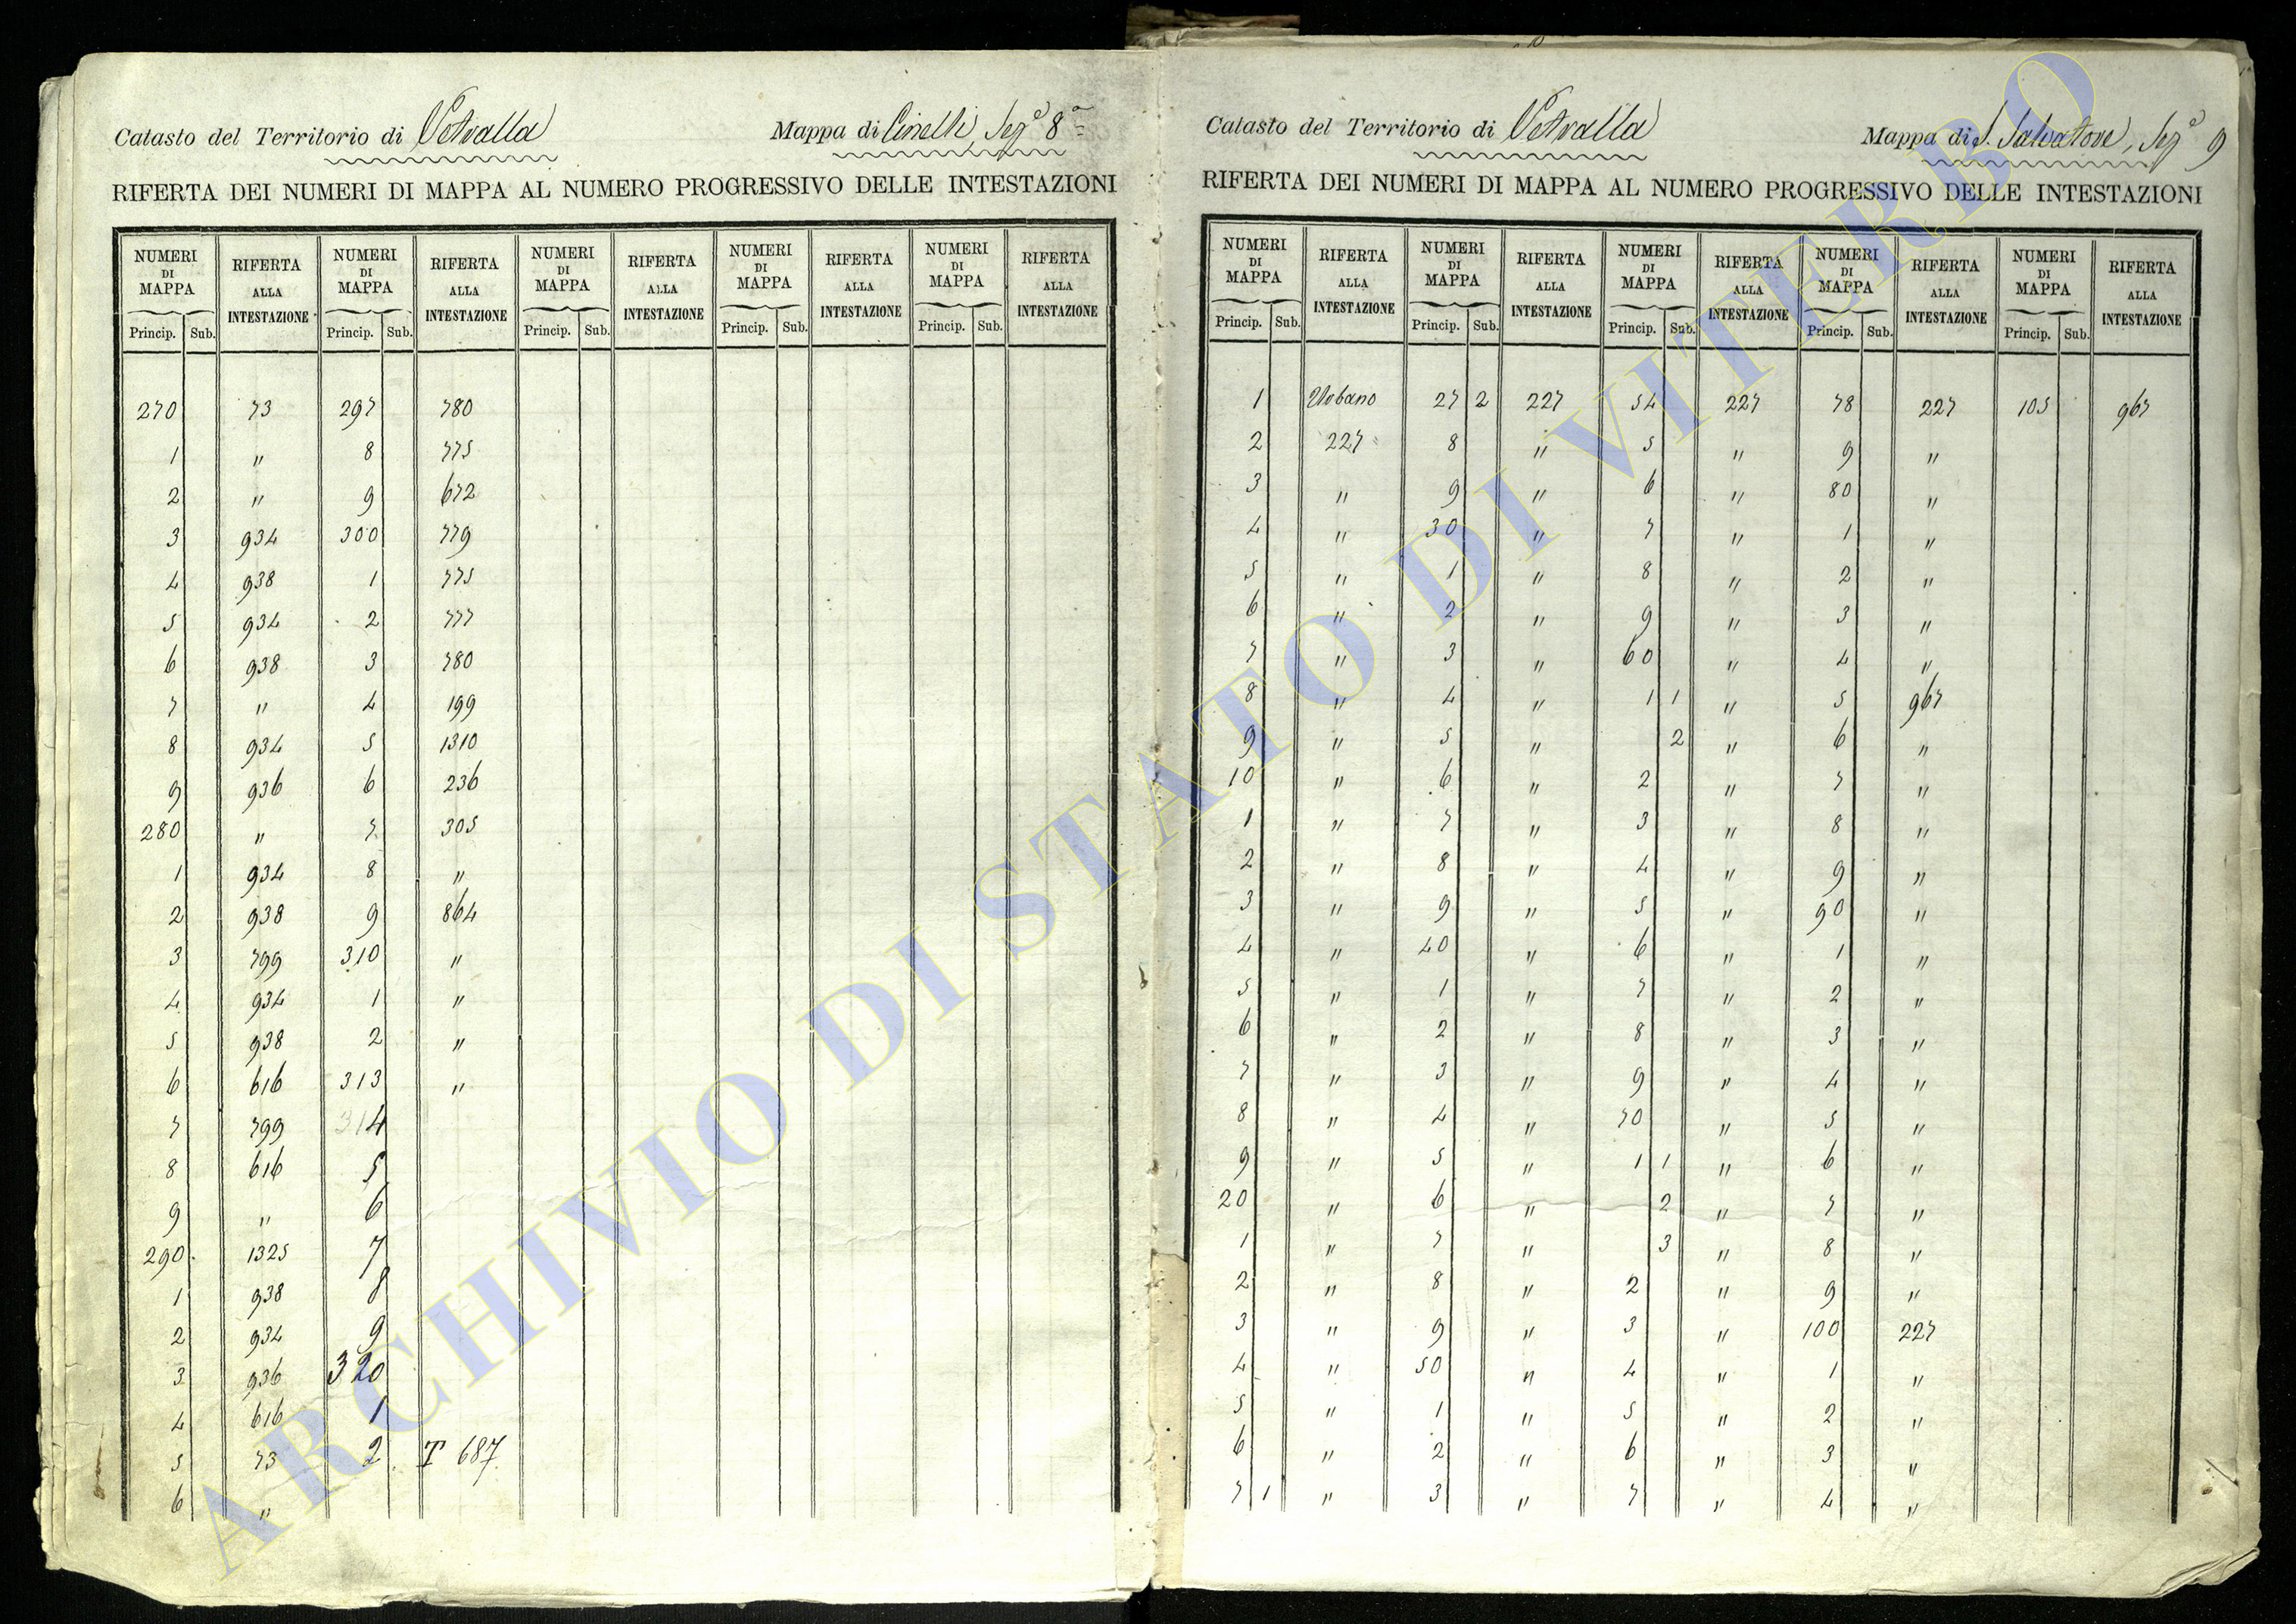 Catasto del Territorio di Vetralla Mappa di Cinelli, Sez.e 8a
RIFERTA DEI NUMERI DI MAPPA AL NUMERO PROGRESSIVO DELLE INTESTAZIONI
NUMERI DI MAPPA RIFERTA ALLA INTESTAZIONE NUMERI DI MAPPA RIFERTA ALLA INTESTAZIONE NUMERI DI MAPPA RIFERTA ALLA INTESTAZIONE NUMERI DI MAPPA RIFERTA ALLA INTESTAZIONE NUMERI DI MAPPA RIFERTA ALLA INTESTAZIONE
Princip. Sub. Princip. Sub. Princip. Sub. Princip. Sub. Princip. Sub.
270 73 297 780
1 " 8 775
2 " 9 672
3 934 300 779
4 938 1 775
5 934 2 777
6 938 3 780
7 " 4 199
8 934 5 1310
9 936 6 236
280 " 7 305
1 934 8 "
2 938 9 864
3 799 310 "
4 934 1 "
5 938 2 "
6 616 313 "
7 799 314
8 616 5
9 " 6
290 1325 7
1 938 8
2 934 9
3 936 320
4 616 1
5 73 2 T 687
6 "
Catasto del Territorio di Vetralla Mappa di S. Salvatore, Sez.e 9
RIFERTA DEI NUMERI DI MAPPA AL NUMERO PROGRESSIVO DELLE INTESTAZIONI
NUMERI DI MAPPA RIFERTA ALLA INTESTAZIONE NUMERI DI MAPPA RIFERTA ALLA INTESTAZIONE NUMERI DI MAPPA RIFERTA ALLA INTESTAZIONE NUMERI DI MAPPA RIFERTA ALLA INTESTAZIONE NUMERI DI MAPPA RIFERTA ALLA INTESTAZIONE
Princip. Sub. Princip. Sub. Princip. Sub. Princip. Sub. Princip. Sub.
1 Urbano 27 2 227 54 227 78 227 105 967
2 227 8 " 5 " 9 "
3 " 9 " 6 " 80 "
4 " 30 " 7 " 1 "
5 " 1 " 8 " 2 "
6 " 2 " 9 " 3 "
7 " 3 " 60 " 4 "
8 " 4 " 1 1 " 5 967
9 " 5 " 2 " 6 "
10 " 6 " 2 " 7 "
1 " 7 " 3 " 8 "
2 " 8 " 4 " 9 "
3 " 9 " 5 " 90 "
4 " 40 " 6 " 1 "
5 " 1 " 7 " 2 "
6 " 2 " 8 " 3 "
7 " 3 " 9 " 4 "
8 " 4 " 70 " 5 "
9 " 5 " 1 1 " 6 "
20 " 6 " 2 " 7 "
1 " 7 " 3 " 8 "
2 " 8 " 2 " 9 "
3 " 9 " 3 " 100 227
4 " 50 " 4 " 1 "
5 " 1 " 5 " 2 "
6 " 2 " 6 " 3 "
7 1 " 3 " 7 " 4 "
ARCHIVIO DI STATO DI VITERBO